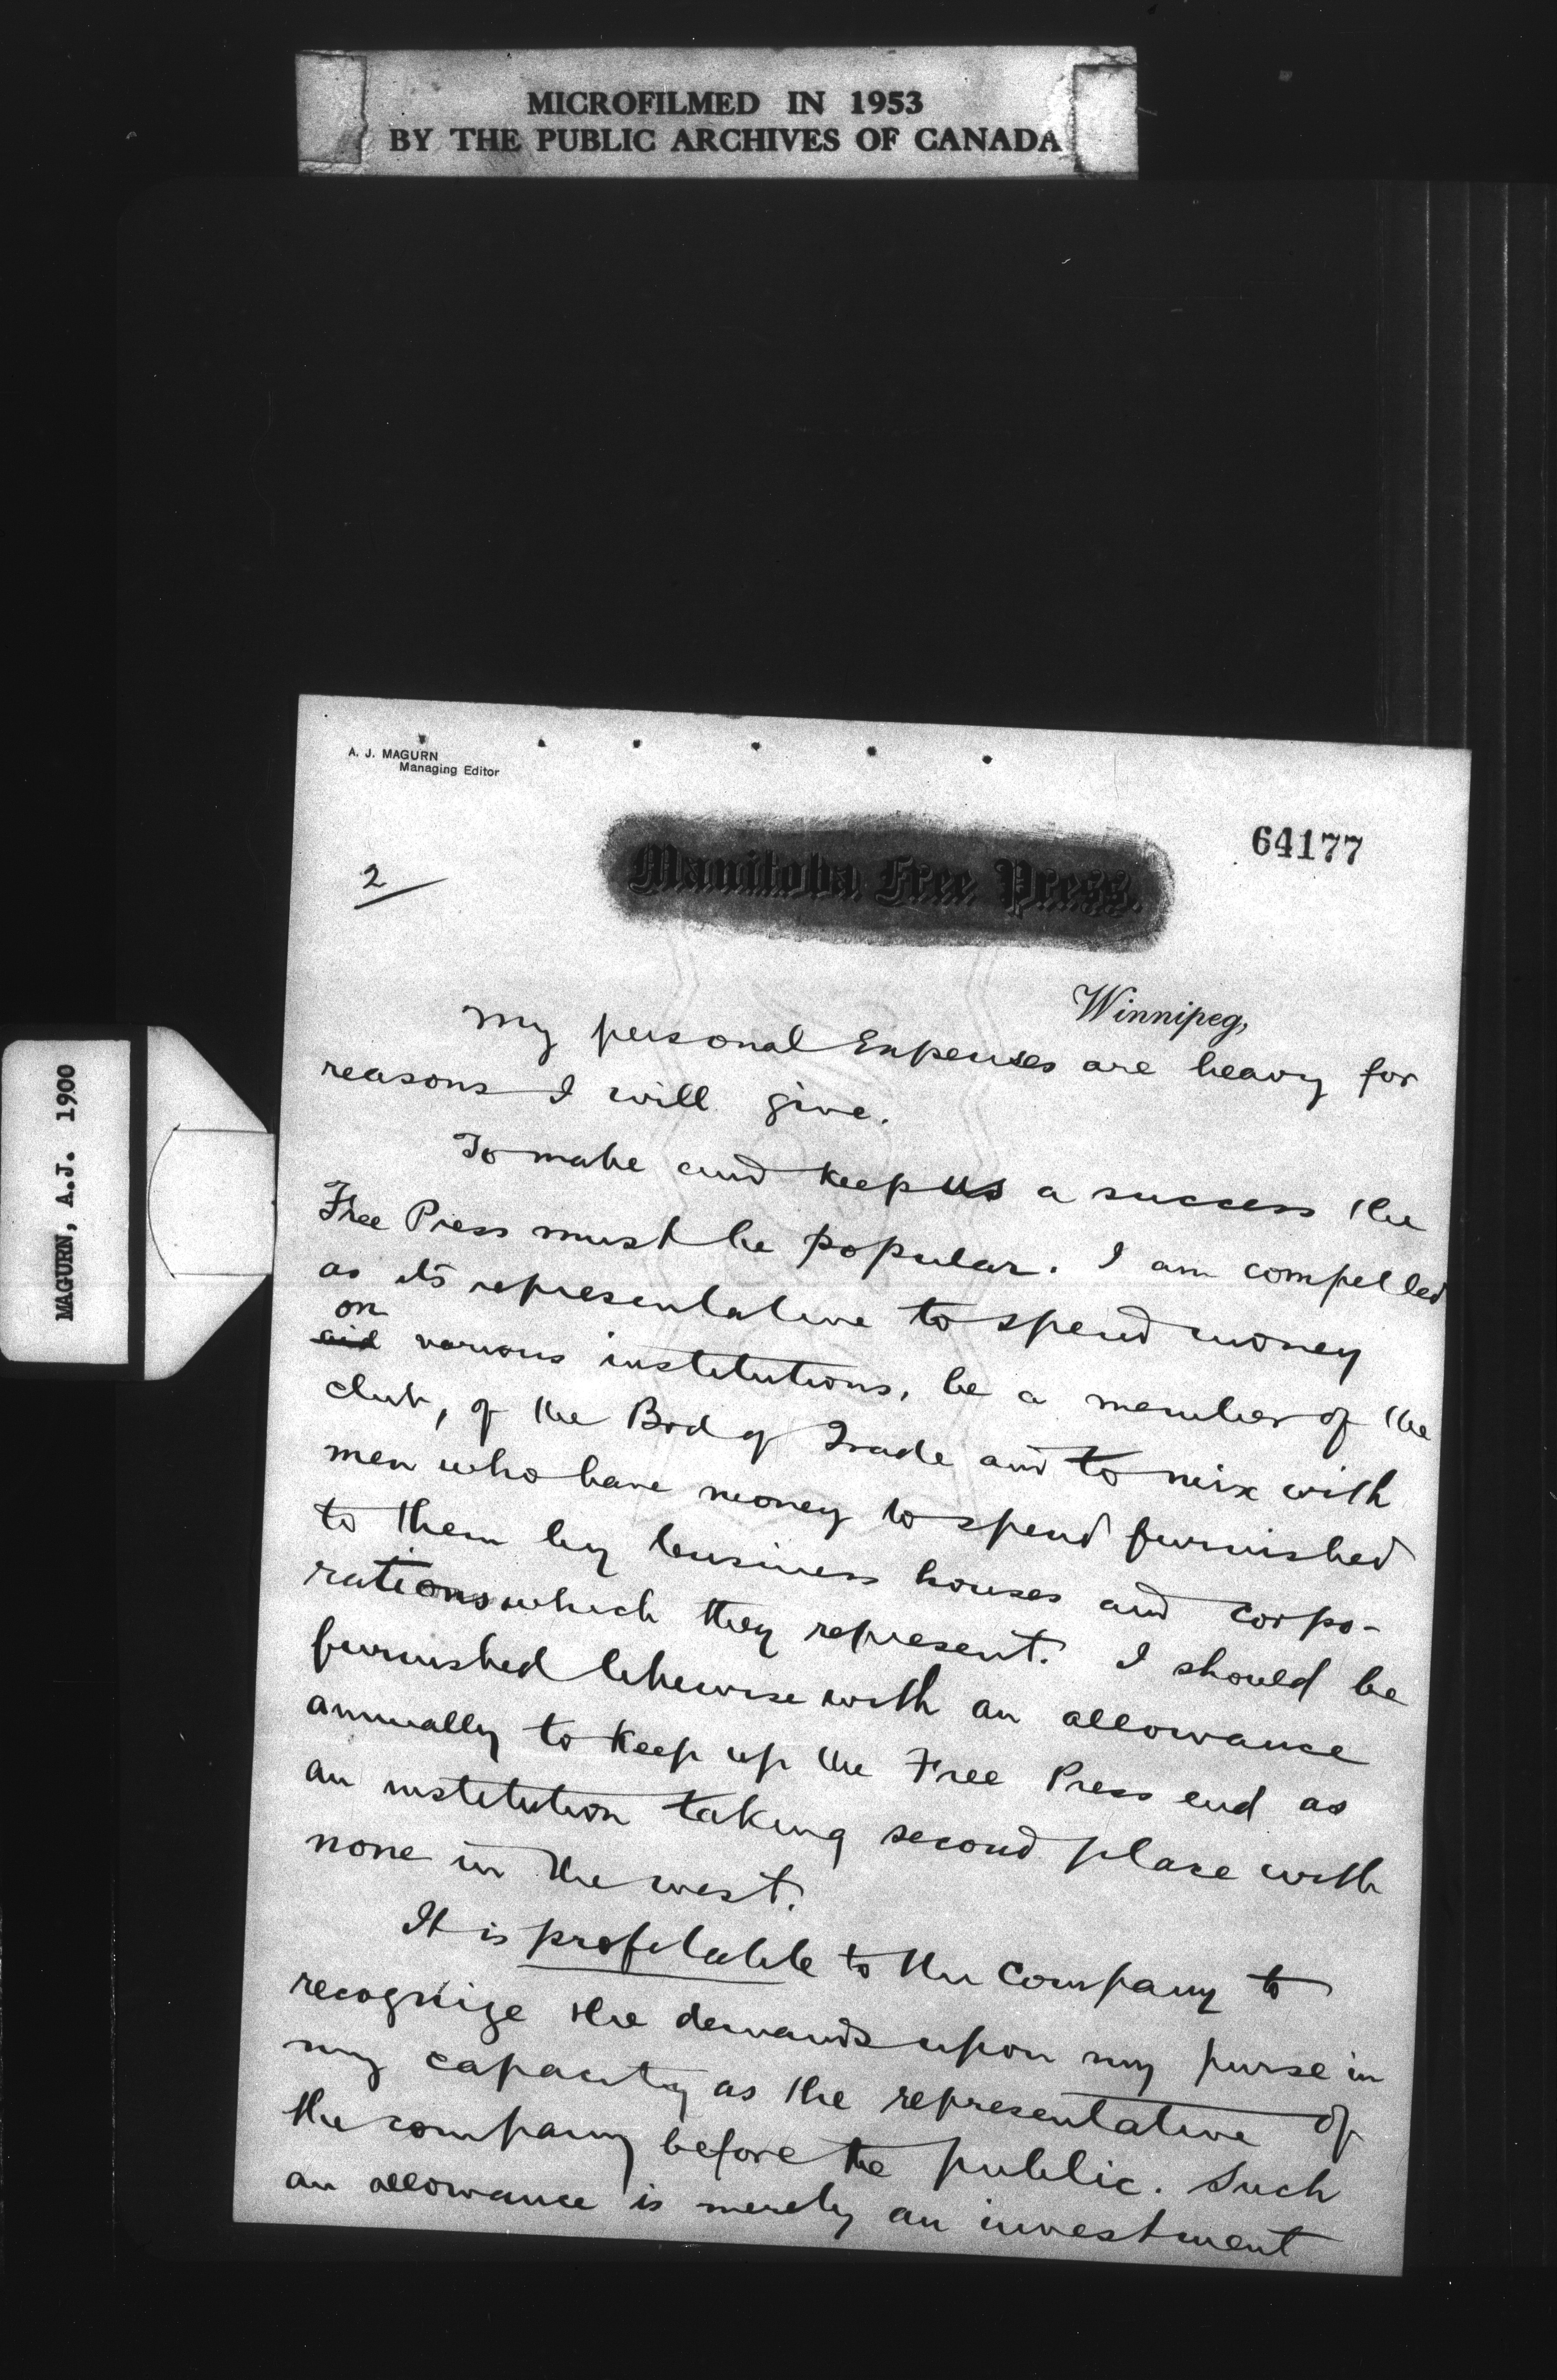 MICROFILMED IN 1953
BY THE PUBLIC ARCHIVES OF CANADA
MAGURN, A.J. 1900
A. J. MAGURN
Managing Editor
64177
2
Manitoba Free Press.
Winnipeg,
My personal Expenses are heavy for
reasons I will give.
To make and keep us a success the
Free Press must be popular. I am compelled
as its representative to spend money
on
aid various institutions, be a member of the
club, of the Brd of Trade and to mix with
men who have money to spend furnished
to them by business houses and corpo-
rations which they represent. I should be
furnished likewise with an allowance
annually to keep up the Free Press end as
an institution taking second place with
none in the west.
It is profitable to the Company to
recognize the demands upon my purse in
my capacity as the representative of
the company before the public. Such
an allowance is merely an investment